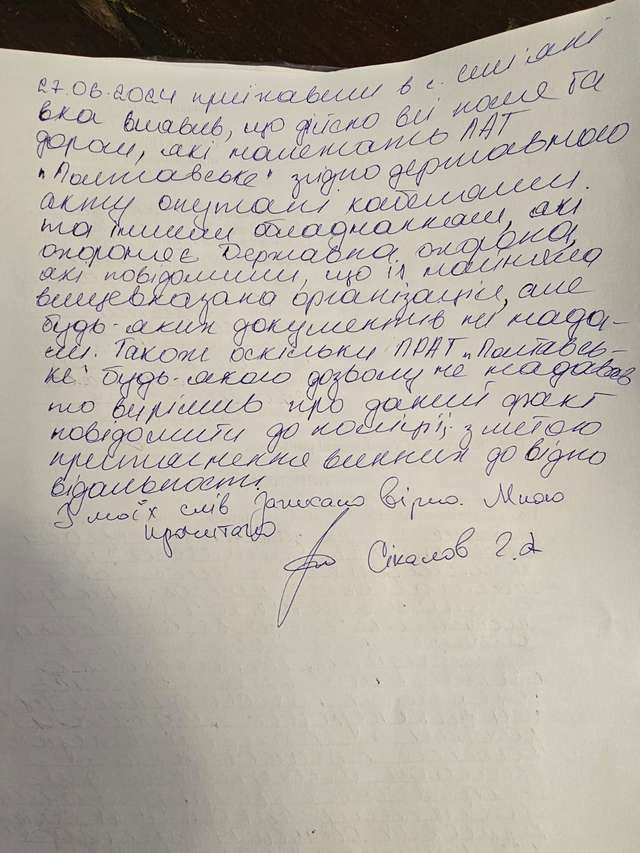 27.06.2024 приїхавши в с.
вка виявив, що дійсно всі поля та
дороги, які належать ПАТ
"Полтавське" згідно державного
акту окутані кабелями
та іншим обладнанням, які
охороняє Державна охорона,
які повідомили, що їх найняла
вищевказана організація, але
будь-яких документів не нада-
ли. Також оскільки ПРАТ "Полтавсь-
ке" будь-якого дозволу не надавав
то вирішив про даний факт
повідомити до поліції з метою
притягнення винних до відпо
відальності.
З моїх слів записано вірно. Мною
прочитано
Сікалов Г.А